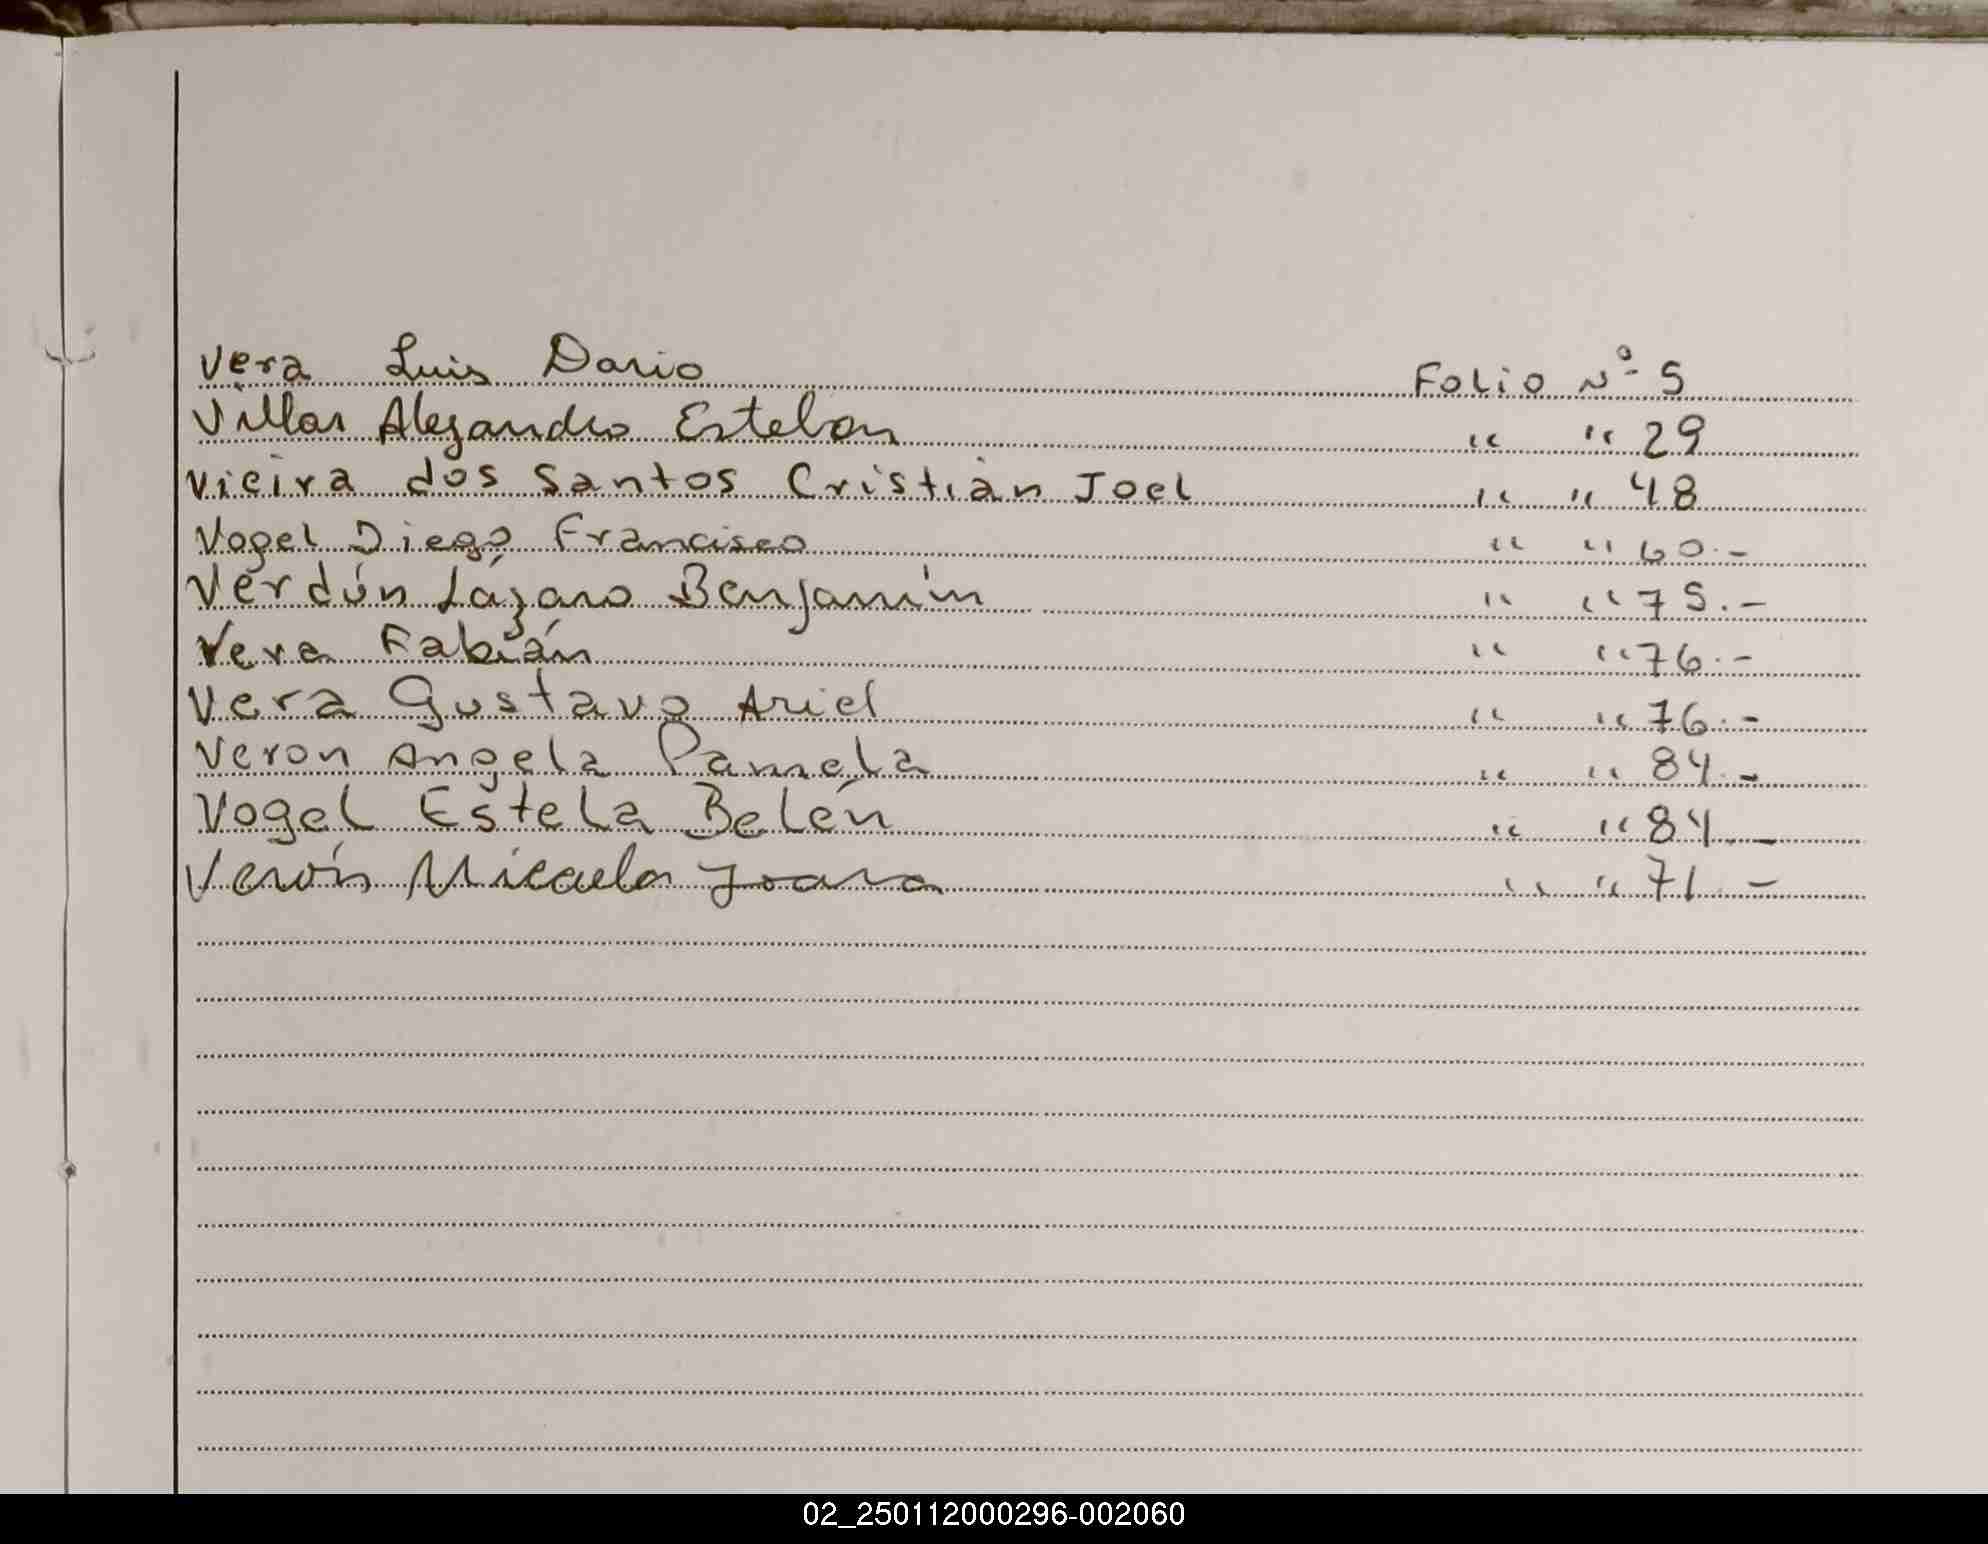 Vera Luis Dario Folio Nº 5
Villar Alejandro Esteban " " 29
Vieira dos Santos Cristián Joel " " 48
Vogel Diego Francisco " " 60.-
Verdún Lázaro Benjamín " " 75.-
Vera Fabián " " 76.-
Vera Gustavo Ariel " " 76.-
Veron Angela Pamela " " 84.-
Vogel Estela Belén " " 84 -
Verón Micaela Joana " " 71 -
02_250112000296-002060